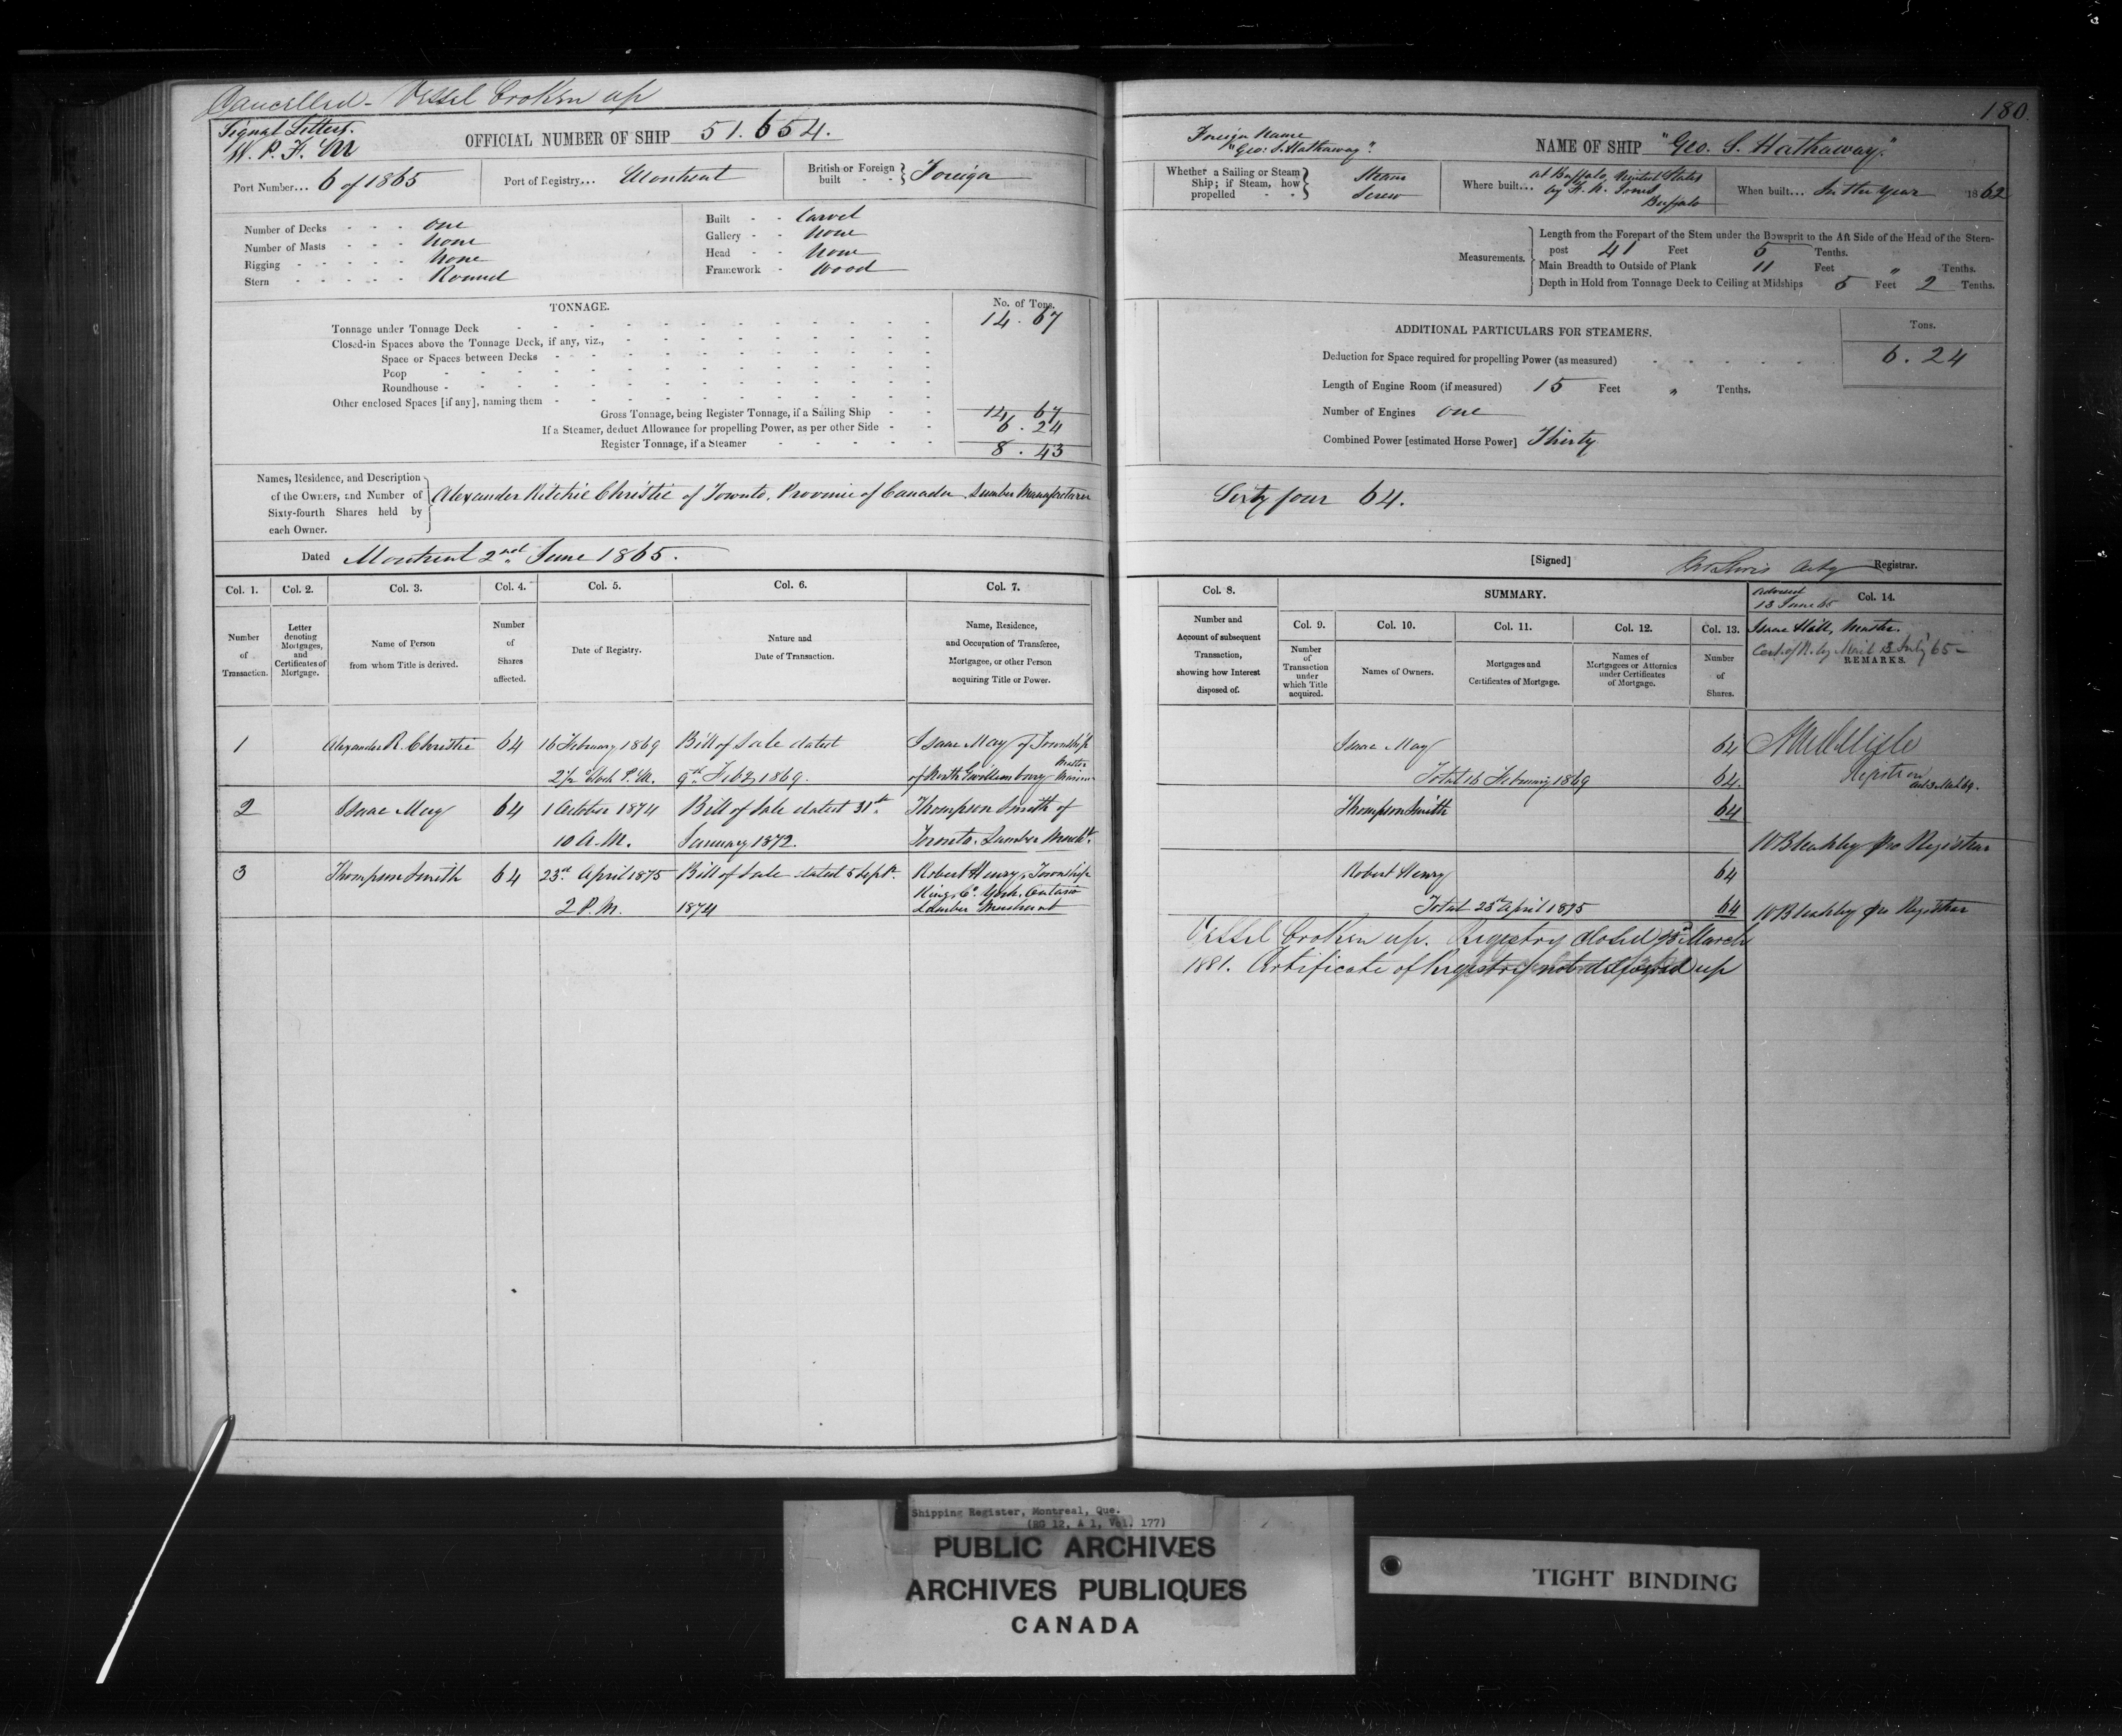 Cancelled - Vessel broken up
Signal Letters.
W. P. F. M
OFFICIAL NUMBER OF SHIP 51.654.
Port Number... 6 of 1865
Port of Registry... Montreal
British or Foreign built - - } Foreign
Number of Decks - - - one
Number of Masts - - - None
Rigging - - - - - None
Stern - - - - - Round
Built - - Carvel
Gallery - - None
Head - - None
Framework - Wood
TONNAGE.
No. of Tons.
Tonnage under Tonnage Deck 14.67
Closed-in Spaces above the Tonnage Deck, if any, viz.,
Space or Spaces between Decks
Poop
Roundhouse
Other enclosed Spaces [if any], naming them
Gross Tonnage, being Register Tonnage, if a Sailing Ship 14 67
If a Steamer, deduct Allowance for propelling Power, as per other Side 6.24
Register Tonnage, if a Steamer 8.43
Names, Residence, and Description
of the Owners, and Number of
Sixty-fourth Shares held by
each Owner.
Alexander Ritchie Christie of Toronto, Province of Canada Lumber Manufacturer
Dated Montreal 2nd June 1865.
Col. 1. Col. 2. Col. 3. Col. 4. Col. 5. Col. 6. Col. 7.
Number of Transaction.
Letter denoting Mortgages, and Certificates of Mortgage.
Name of Person from whom Title is derived.
Number of Shares affected.
Date of Registry.
Nature and Date of Transaction.
Name, Residence, and Occupation of Transferee, Mortgagee, or other Person acquiring Title or Power.
1 Alexander R. Christie 64 16 February 1869 Bill of Sale dated Isaac May of Township
2½ Clock P.M. 9th Feby 1869. of North Gwillimbury Master Mariner
2 Isaac May 64 1 October 1874 Bill of Sale dated 31st Thompson Smith of
10 A.M. January 1872. Toronto. Lumber Merch't.
3 Thompson Smith 64 23rd April 1875 Bill of Sale dated 5 Sept. Robert Henry, Township
King, Co. York. Ontario
2 P.M. 1874 Lumber Merchant
180
Foreign Name
"Geo: S. Hathaway".
NAME OF SHIP "Geo. S. Hathaway."
Whether a Sailing or Steam Ship; if Steam, how propelled - - } Steam
Screw
Where built... at Buffalo, United States
by F. N. Jones
Buffalo
When built... In the Year 1862
Measurements.
Length from the Forepart of the Stem under the Bowsprit to the Aft Side of the Head of the Stern-
post 41 Feet 5 Tenths.
Main Breadth to Outside of Plank 11 Feet " Tenths.
Depth in Hold from Tonnage Deck to Ceiling at Midships 5 Feet 2 Tenths.
ADDITIONAL PARTICULARS FOR STEAMERS.
Tons.
Deduction for Space required for propelling Power (as measured) 6.24
Length of Engine Room (if measured) 15 Feet " Tenths.
Number of Engines one
Combined Power [estimated Horse Power] Thirty
Sixty four 64.
[Signed] Registrar.
Col. 8.
SUMMARY.
Col. 14.
Number and Account of subsequent Transaction, showing how Interest disposed of.
Col. 9. Col. 10. Col. 11. Col. 12. Col. 13.
Number of Transaction under which Title acquired.
Names of Owners.
Mortgages and Certificates of Mortgage.
Names of Mortgagees or Attornies under Certificates of Mortgage.
Number of Shares.
13 June 65
Isaac Hall, Master.
Cert. of R. by Mail 13 July 65 -
REMARKS.
Isaac May 64
Total 16 February 1869 64.
Registrar
Thompson Smith 64
pro Registrar
Robert Henry 64
Total 23rd April 1875 64
pro Registrar
Vessel broken up. Registry closed March
1881. Certificate of Registry not delivered up
Shipping Register, Montreal, Que.
(RG 12, A 1, Vol. 177)
PUBLIC ARCHIVES
ARCHIVES PUBLIQUES
CANADA
TIGHT BINDING